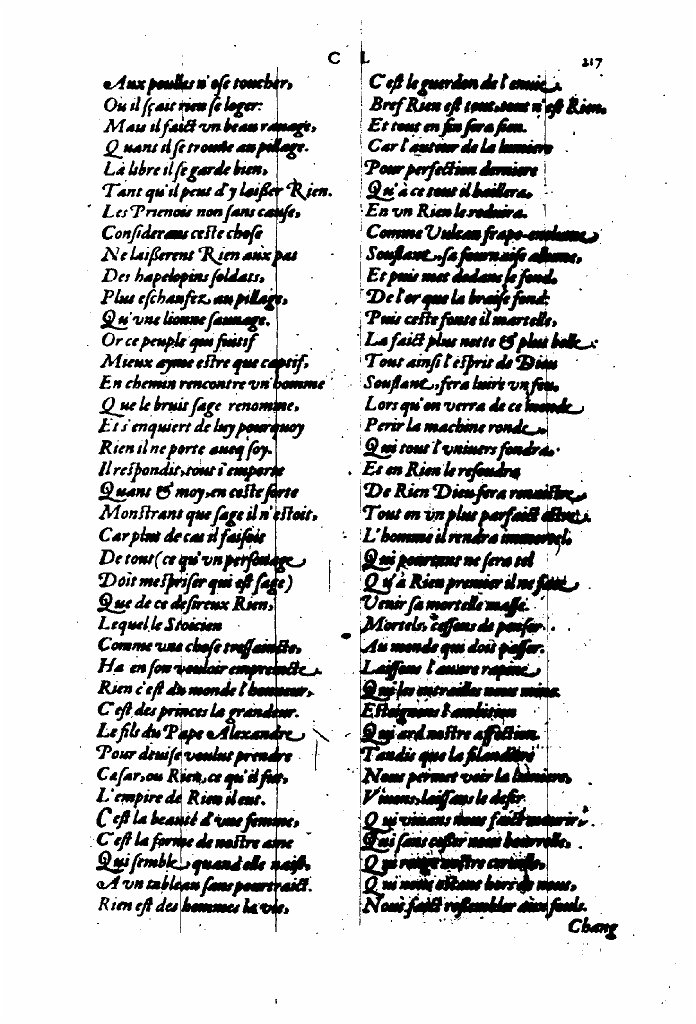 C L
217
Aux poulles n'ose toucher,
Ou il sçait rien se loger:
Mais il faict vn beau rauage,
Quant il se trouue au pillage.
Là libre il se garde bien,
Tant qu'il peut d'y laißer Rien.
Les Prienois non sans cause,
Considerans ceste chose
Ne laißerent Rien aux pas
Des hapelopins soldats,
Plus eschaufez au pillage,
Qu'vne lionne sauuage.
Or ce peuple qui fuitif
Mieux ayme estre que captif,
En chemin rencontre vn homme
Que le bruit sage renomme,
Et s'enquiert de luy pourquoy
Rien il ne porte aueq soy.
Il respondit, tout i'emporte
Quant & moy, en ceste sorte
Monstrant que sage il n'estoit,
Car plus de cas il faisoit
De tout (ce qu'vn personage
Doit mespriser qui est sage)
Que de ce desireux Rien,
Lequel le Stoicien
Comme vne chose tressaincte,
Ha en son vouloir empreincte.
Rien c'est du monde l'honneur,
C'est des princes la grandeur.
Le fils du Pape Alexandre
Pour deuise voulut prendre
Cæsar, ou Rien, ce qu'il fut,
L'empire de Rien il eut.
C'est la beauté d'vne femme,
C'est la forme de nostre ame
Qui semble, quand elle naist,
A vn tableau sans pourtraict.
Rien est des hommes la vie,
C'est le guerdon de l'enuie.
Bref Rien est tout, tout n'est Rien,
Et tout en fin sera sien.
Car l'auteur de la lumiere
Pour perfection derniere
Qu'à ce tout il baillera,
En vn Rien le reduira.
Comme Vulcan frape-enclume,
Souflant, sa fournaise allume,
Et puis met dedans se fond,
De l'or que la braise fond:
Puis ceste fonte il martelle,
La faict plus nette & plus belle:
Tout ainsi l'esprit de Dieu
Souflant, fera luire vn feu,
Lors qu'on verra de ce monde
Perir la machine ronde,
Qui tout l'vniuers fondra,
Et en Rien le resoudra
De Rien Dieu fera renaistre,
Tout en vn plus parfaict estre.
L'homme il rendra immortel,
Qui pourtant ne sera tel
Qu'à Rien premier il ne face
Venir sa mortelle masse.
Mortels, cessons de penser
Au monde qui doit passer.
Laissons l'auare rapine
Qui les entrailles nous mine.
Esteignons l'ambition
Qui ard nostre affection.
Tandis que la filandiere
Nous permet voir la lumiere,
Viuons, laissans le desir
Qui viuans nous faict mourir,
Qui sans cesser nous bourrelle,
Qui ronge nostre ceruelle,
Qui nous ostans hors de nous,
Nous faict resembler aux fouls.
Chang